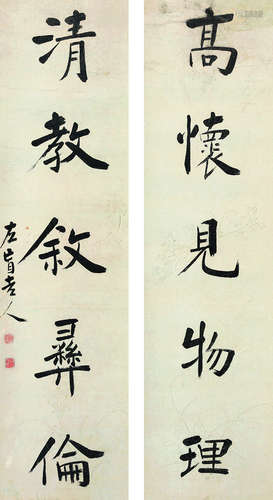 高懷見物理
清教敘彝倫
左盲老人